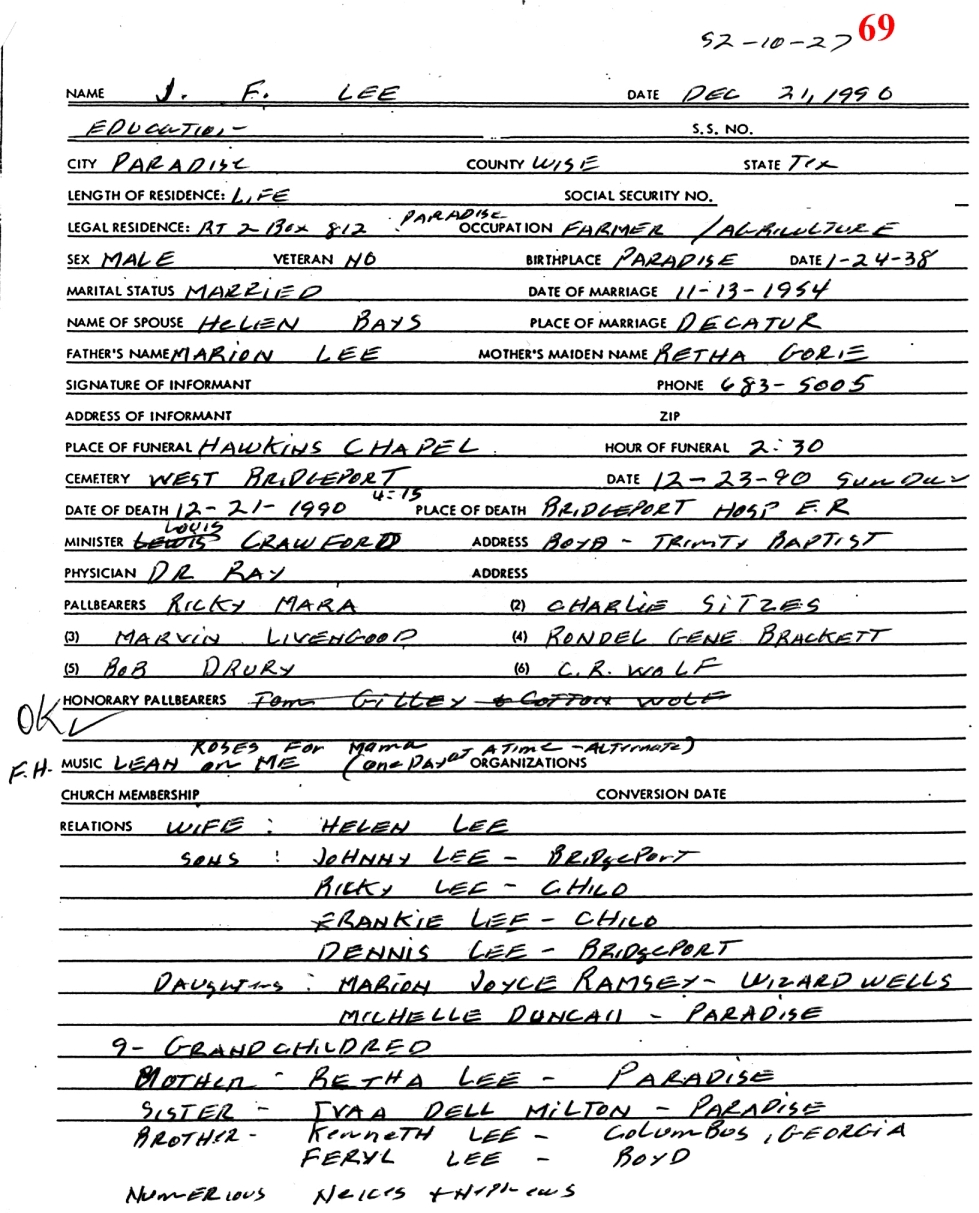 52-10-27 69
NAME J. F. LEE DATE DEC 21, 1990
EDUCATION- S.S. NO.
CITY PARADISE COUNTY WISE STATE TEX
LENGTH OF RESIDENCE: LIFE SOCIAL SECURITY NO.
LEGAL RESIDENCE: RT 2 BOX 812 PARADISE OCCUPATION FARMER / AGRICULTURE
SEX MALE VETERAN NO BIRTHPLACE PARADISE DATE 1-24-38
MARITAL STATUS MARRIED DATE OF MARRIAGE 11-13-1954
NAME OF SPOUSE HELEN BAYS PLACE OF MARRIAGE DECATUR
FATHER'S NAME MARION LEE MOTHER'S MAIDEN NAME RETHA GORIE
SIGNATURE OF INFORMANT PHONE 683-5005
ADDRESS OF INFORMANT ZIP
PLACE OF FUNERAL HAWKINS CHAPEL HOUR OF FUNERAL 2:30
CEMETERY WEST BRIDGEPORT DATE 12-23-90 SUNDAY
DATE OF DEATH 12-21-1990 4:15 PLACE OF DEATH BRIDGEPORT HOSP E.R
MINISTER LEWIS LOUIS CRAWFORD ADDRESS BOYD - TRINITY BAPTIST
PHYSICIAN DR RAY ADDRESS
PALLBEARERS RICKY MARA (2) CHARLIE SITZES
(3) MARVIN LIVENGOOD (4) RONDEL GENE BRACKETT
(5) BOB DRURY (6) C.R. WOLF
OK HONORARY PALLBEARERS Tom GILLEY & COTTON WOLF
ROSES FOR MAMA
F.H. MUSIC LEAN ON ME (ONE DAY AT A TIME - ALTERNATE) ORGANIZATIONS
CHURCH MEMBERSHIP CONVERSION DATE
RELATIONS WIFE : HELEN LEE
SONS : JOHNNY LEE - BRIDGEPORT
RICKY LEE - CHICO
FRANKIE LEE - CHICO
DENNIS LEE - BRIDGEPORT
DAUGHTERS : MARION JOYCE RAMSEY - WIZARD WELLS
MICHELLE DUNCAN - PARADISE
9- GRANDCHILDRED
MOTHER - RETHA LEE - PARADISE
SISTER - DELL MILTON - PARADISE
BROTHER - KENNETH LEE - COLUMBUS, GEORGIA
FERYL LEE - BOYD
NUMERIOUS NEICES + NEPHEWS